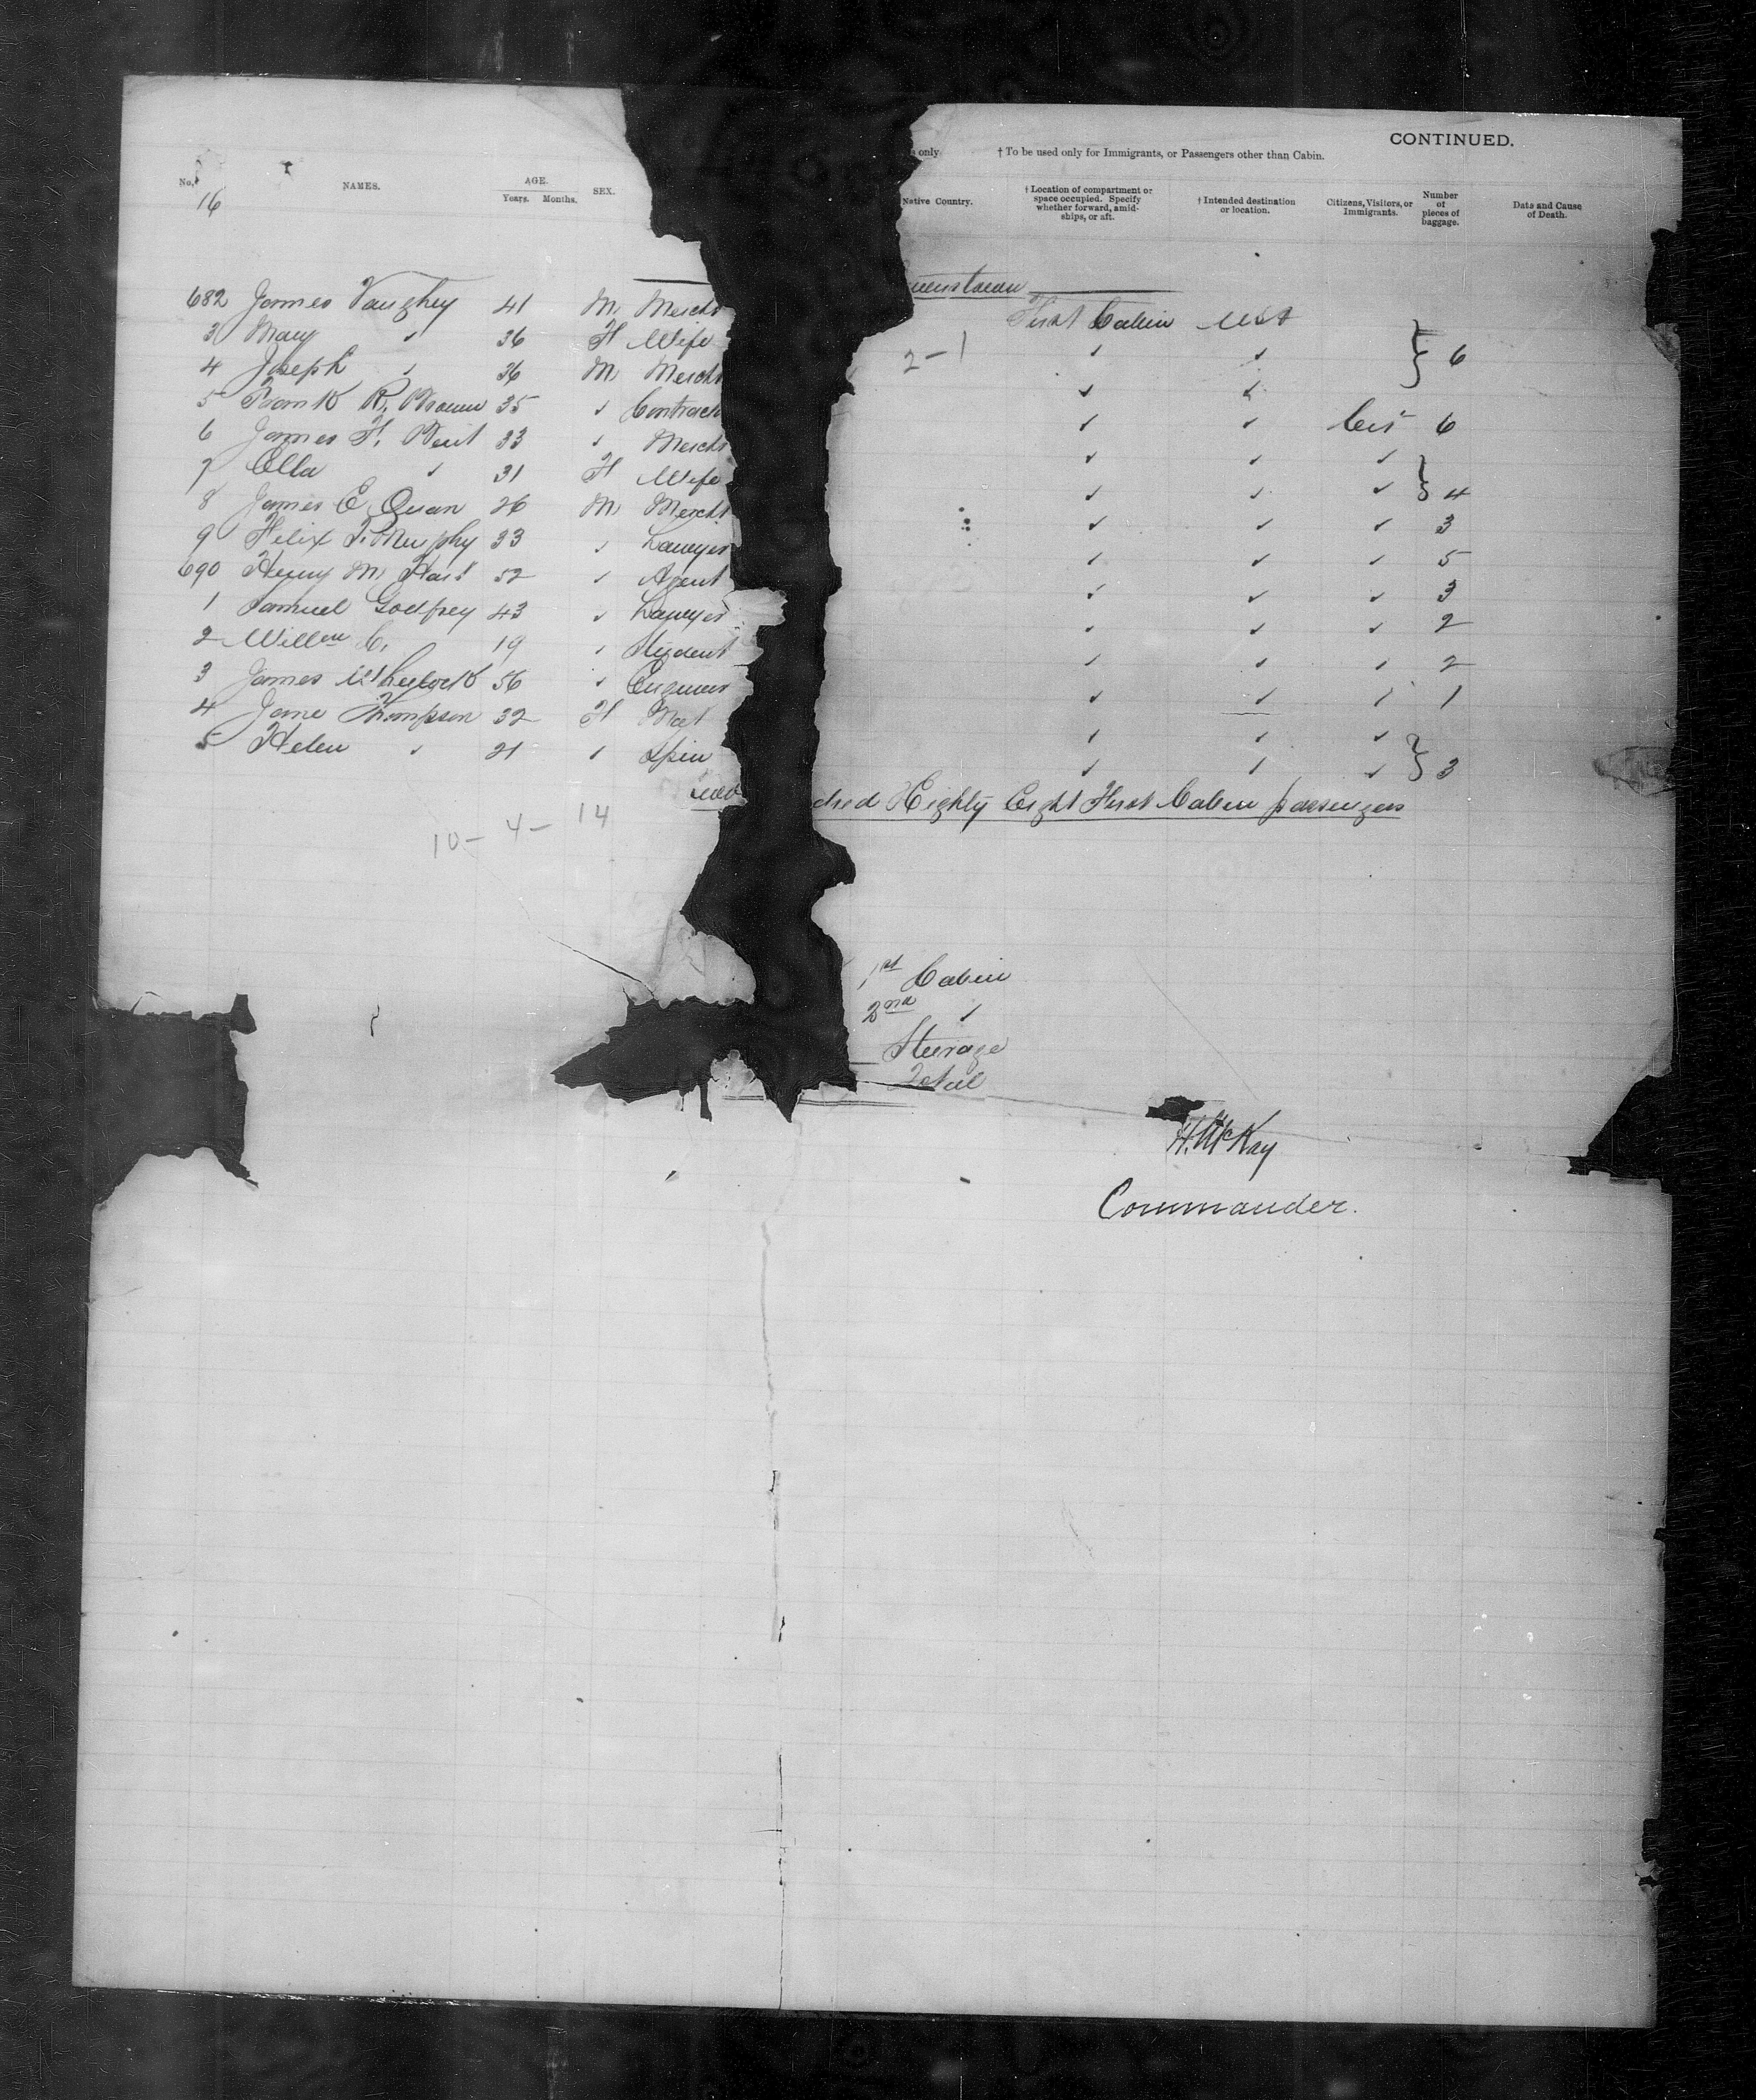 CONTINUED.
s only † To be used only for Immigrants, or Passengers other than Cabin.
No. NAMES. AGE. Years. Months. SEX. Native Country. † Location of compartment or space occupied. Specify whether forward, amidships, or aft. † Intended destination or location. Citizens, Visitors, or Immigrants. Number of pieces of baggage. Date and Cause of Death.
16
ueenstown
682 James Vaughey 41 M Mercht First Cabin USA
3 Mary " 36 F Wife 2-1 " " } 6
4 Joseph " 36 M Mercht " "
5 Frank R. Brown 35 " Contract " " Cit 6
6 James F. Bent 33 " Mercht " " "
7 Ella " 31 F Wife " " " } 4
8 James E Quan 26 M Mercht " " " 3
9 Felix T. Murphy 33 " Lawyer " " " 5
690 Henry M Hart 52 " Agent " " " 3
1 Samuel Godfrey 43 " Lawyer " " " 2
2 Willm C. 19 " Student " " " 2
3 James Wheelock 56 " Engineer " " " 1
4 Jane Thompson 32 F Mat " " "
5 Helen " 21 " Spin " " " } 3
dred & Eighty Eight First Cabin passengers
10-4-14
1st Cabin
2nd "
Steerage
Total
H. McKay
Commander.